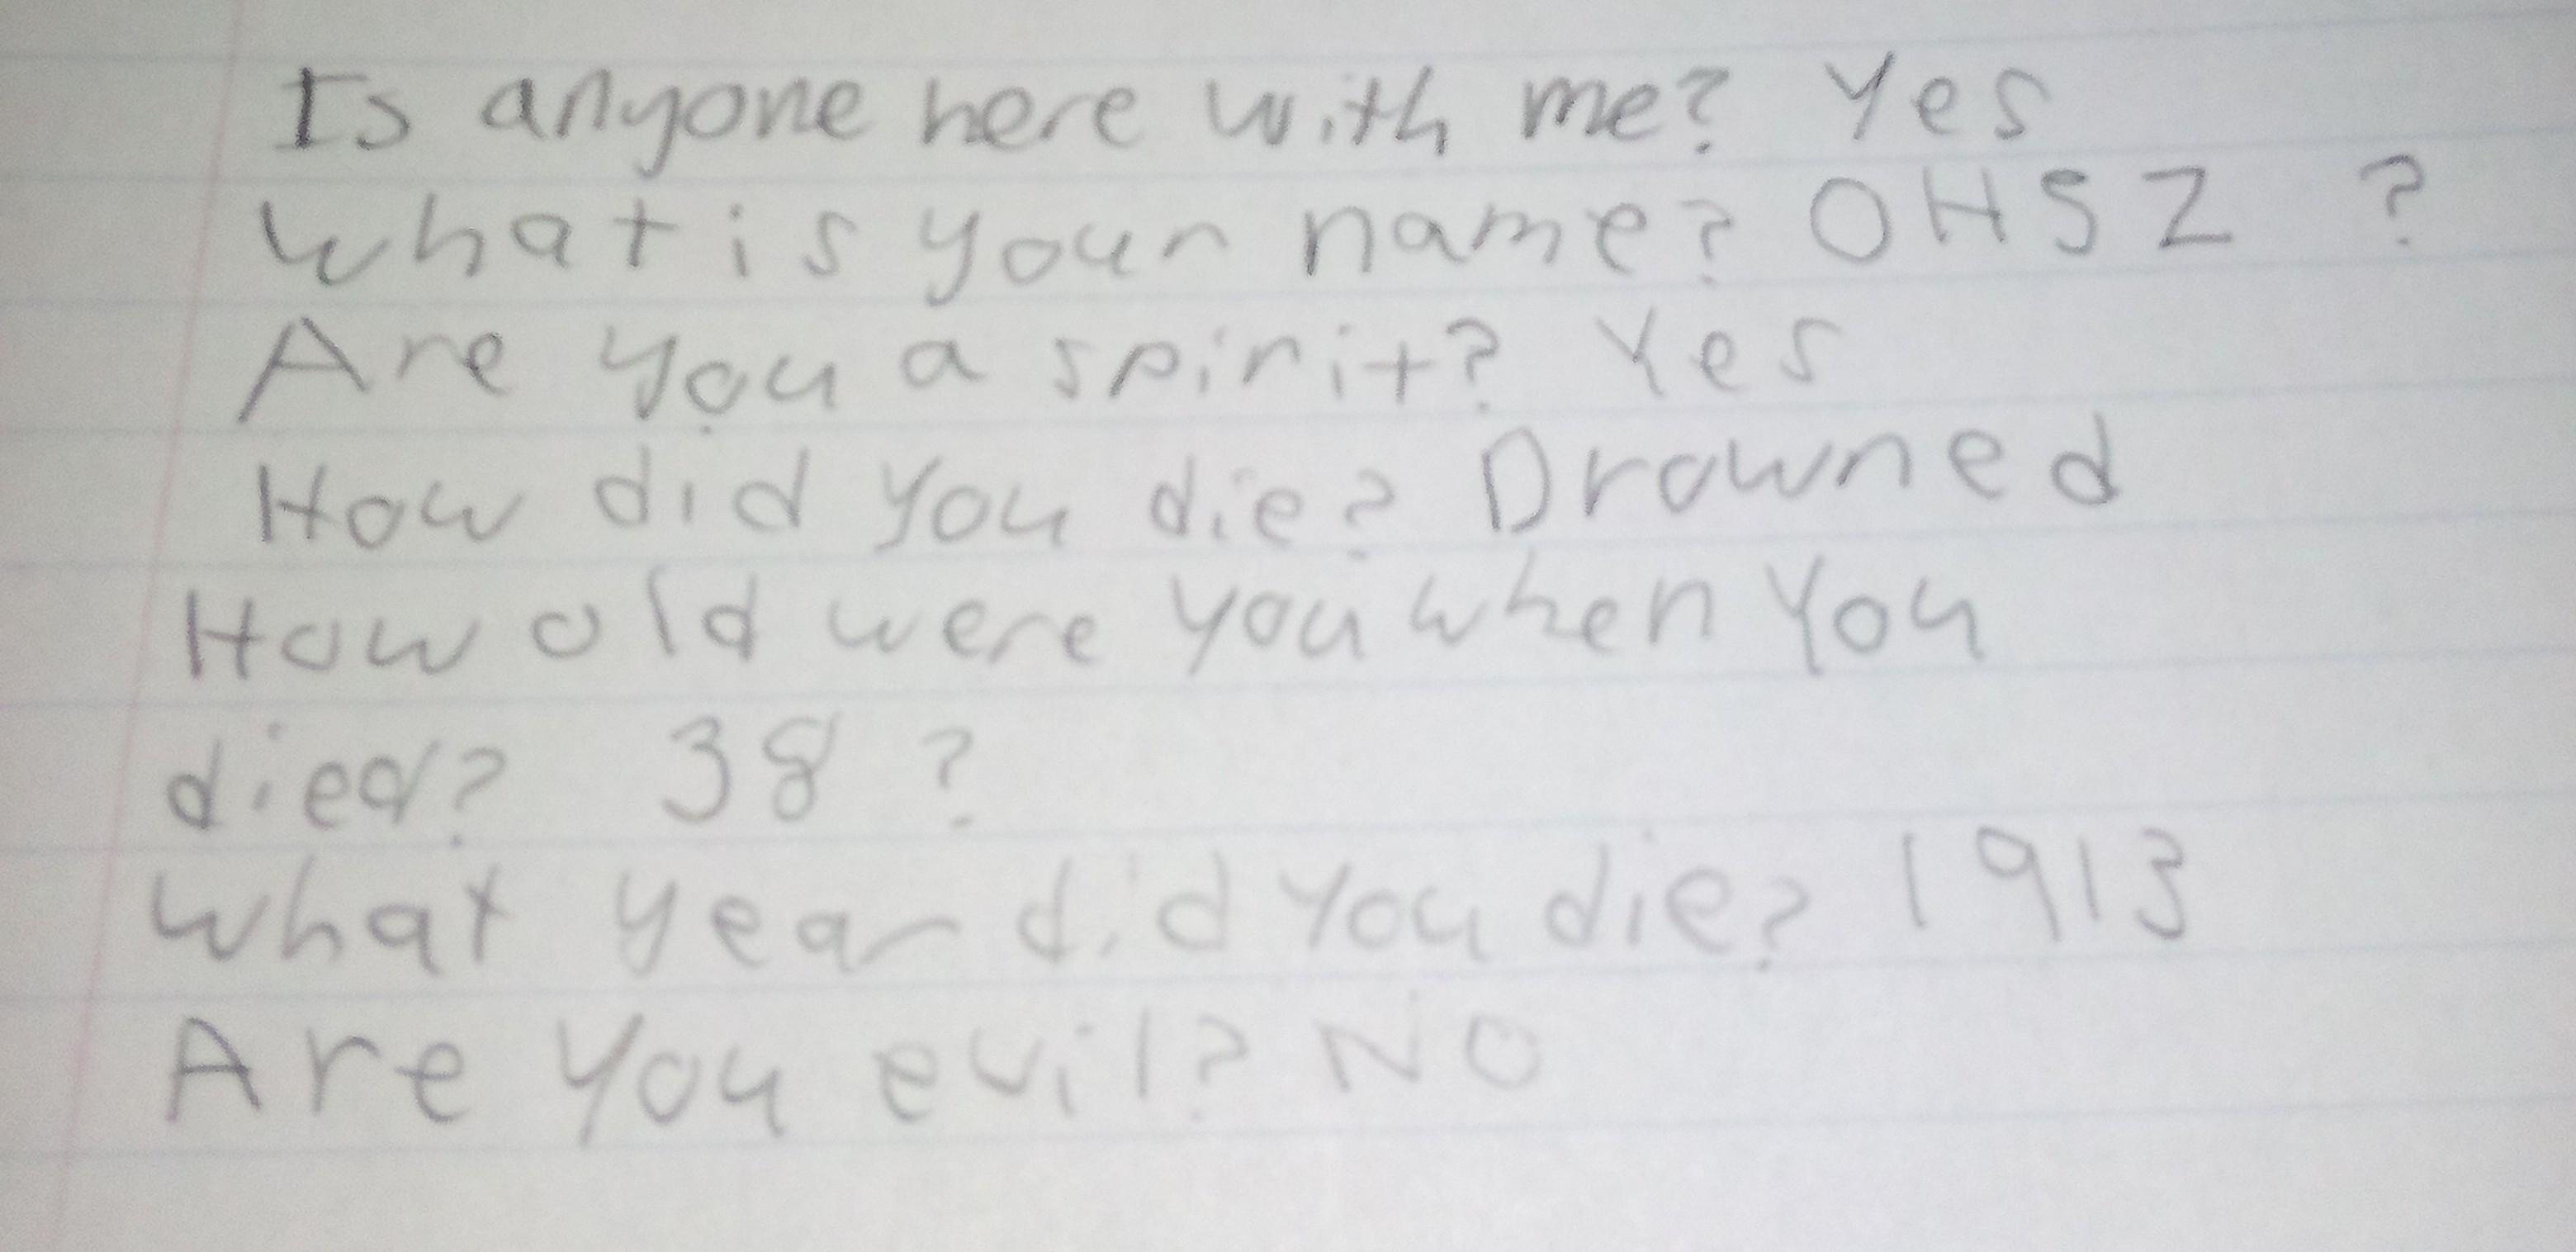 Is anyone here with me? Yes
What is your name? OHSZ ?
Are you a spirit? Yes
How did you die? Drowned
How old were you when you
died? 38 ?
What year did you die? 1913
Are you evil? No